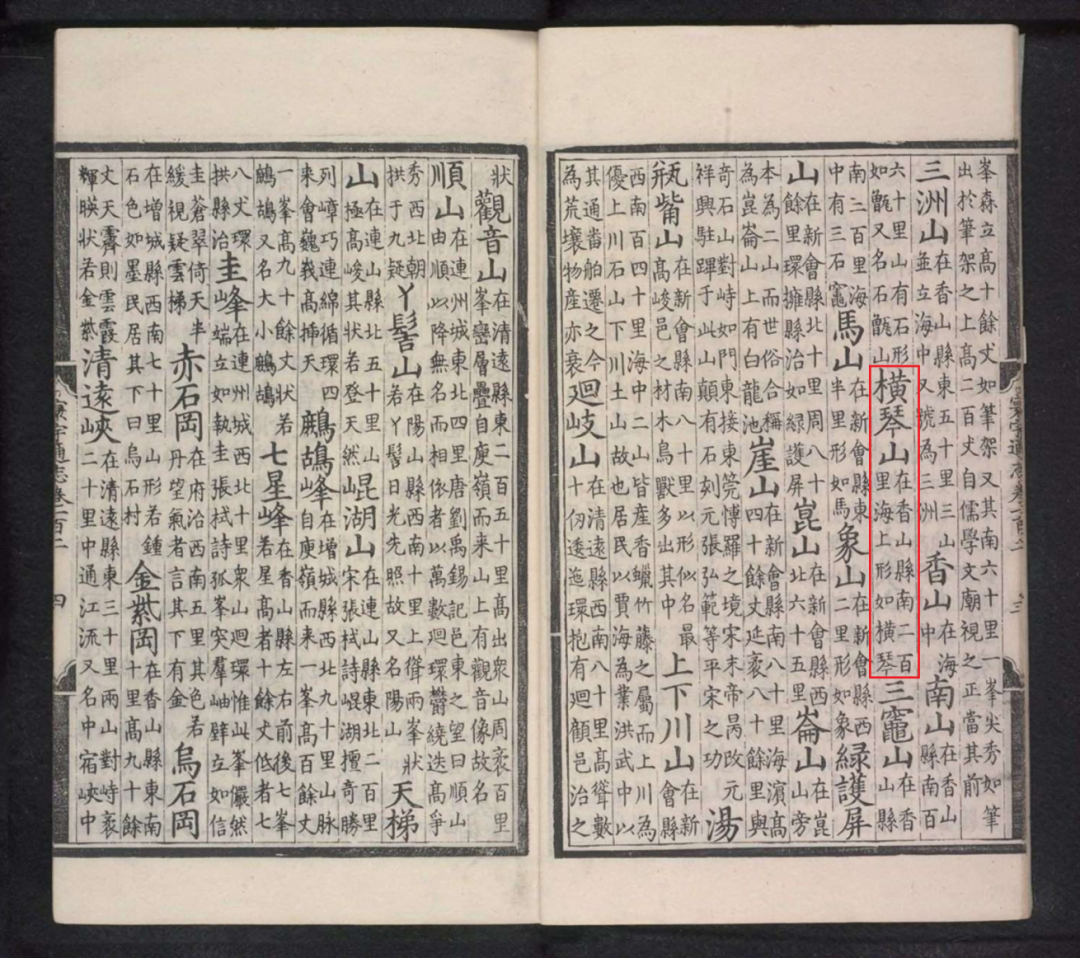 峯森立高十餘丈如筆架又其南六十里一峯尖秀如筆出於筆架之上高二百丈自儒學文廟視之正當其前
三洲山在香山縣東五十里三山並立海中又號為三洲香山在海中南山在香山縣南百
六十里山有石形如甑又名石甑山橫琴山在香山縣南二百里海上形如橫琴三竈山在香山縣
南三百里海中有三石竈馬山在新會縣東半里形如馬象山在新會縣西二里形如象緑護屏
山在新會縣北十里周八十餘里環擁縣治如緑護屏崑山在新會縣西北六十五里崙山在崑山旁
本為二山而世俗合稱為崑崙山上有白龍池崖山在新會縣南八十里海濱高四十餘丈延袤八十餘里與
奇石山對峙如門東接東莞愽羅之境宋末帝昺改元祥興駐蹕于此山顛有石刻元張弘範等平宋之功湯
瓶觜山在新會縣南八十里以形似名最高峻邑之材木鳥獸多出其中上下川山在新會縣
西南百四十里海中二山皆産香蠟竹藤之屬而上川為優上川石山下川土山故也居民以賈海為業洪武中以
其通畨舶遷之今為荒壤物産亦衰廻岐山在清遠縣西南八十里髙聳數十仞逶迤環抱有廻顧邑治之
寰宇通志卷一百二 三
狀觀音山在清遠縣東二百五十里高出衆山周袤百里峯巒層疊自庾嶺而来山上有觀音像故名
順山在連州城東北四里唐劉禹錫記邑東之望曰順山由順以降無名而相依者以萬數廻環欝繞迭髙爭
秀西北朝拱于九疑丫髻山在陽山縣西南十里上聳兩峯狀若丫髻日光先照故又名陽山天梯
山在連山縣北五十里山極高峻其狀若登天然崐湖山在連山縣東北二百里宋張栻詩崐湖擅奇勝
列嶂巧連綿循環四来會巍峩髙揷天鷓鴣峰在增城縣西北九十里山脉自庾嶺而来一峯髙百餘丈
一峯高九十餘丈状若鷓鴣又名大小鷓鴣七星峰在香山縣左右前後七峯若星髙者十餘丈低者七
八丈環拱縣治圭峰在連州城西北十里衆山廻環惟此峯儼然端立如執圭張栻詩孤峯突羣岫壁立如信
圭蒼翠倚天半緩視疑雲梯赤石岡在府治西南五里其色若丹望氣者言其下有金烏石岡
在增城縣西南七十里山形若鍾石色如墨民居其下曰烏石村金紫岡在香山縣東南十里髙九十餘
丈天霽則雲霞輝暎状若金紫清遠峽在清遠縣東三十里兩山對峙二十里中通江流又名中宿峽中
寰宇通志卷一百二 四